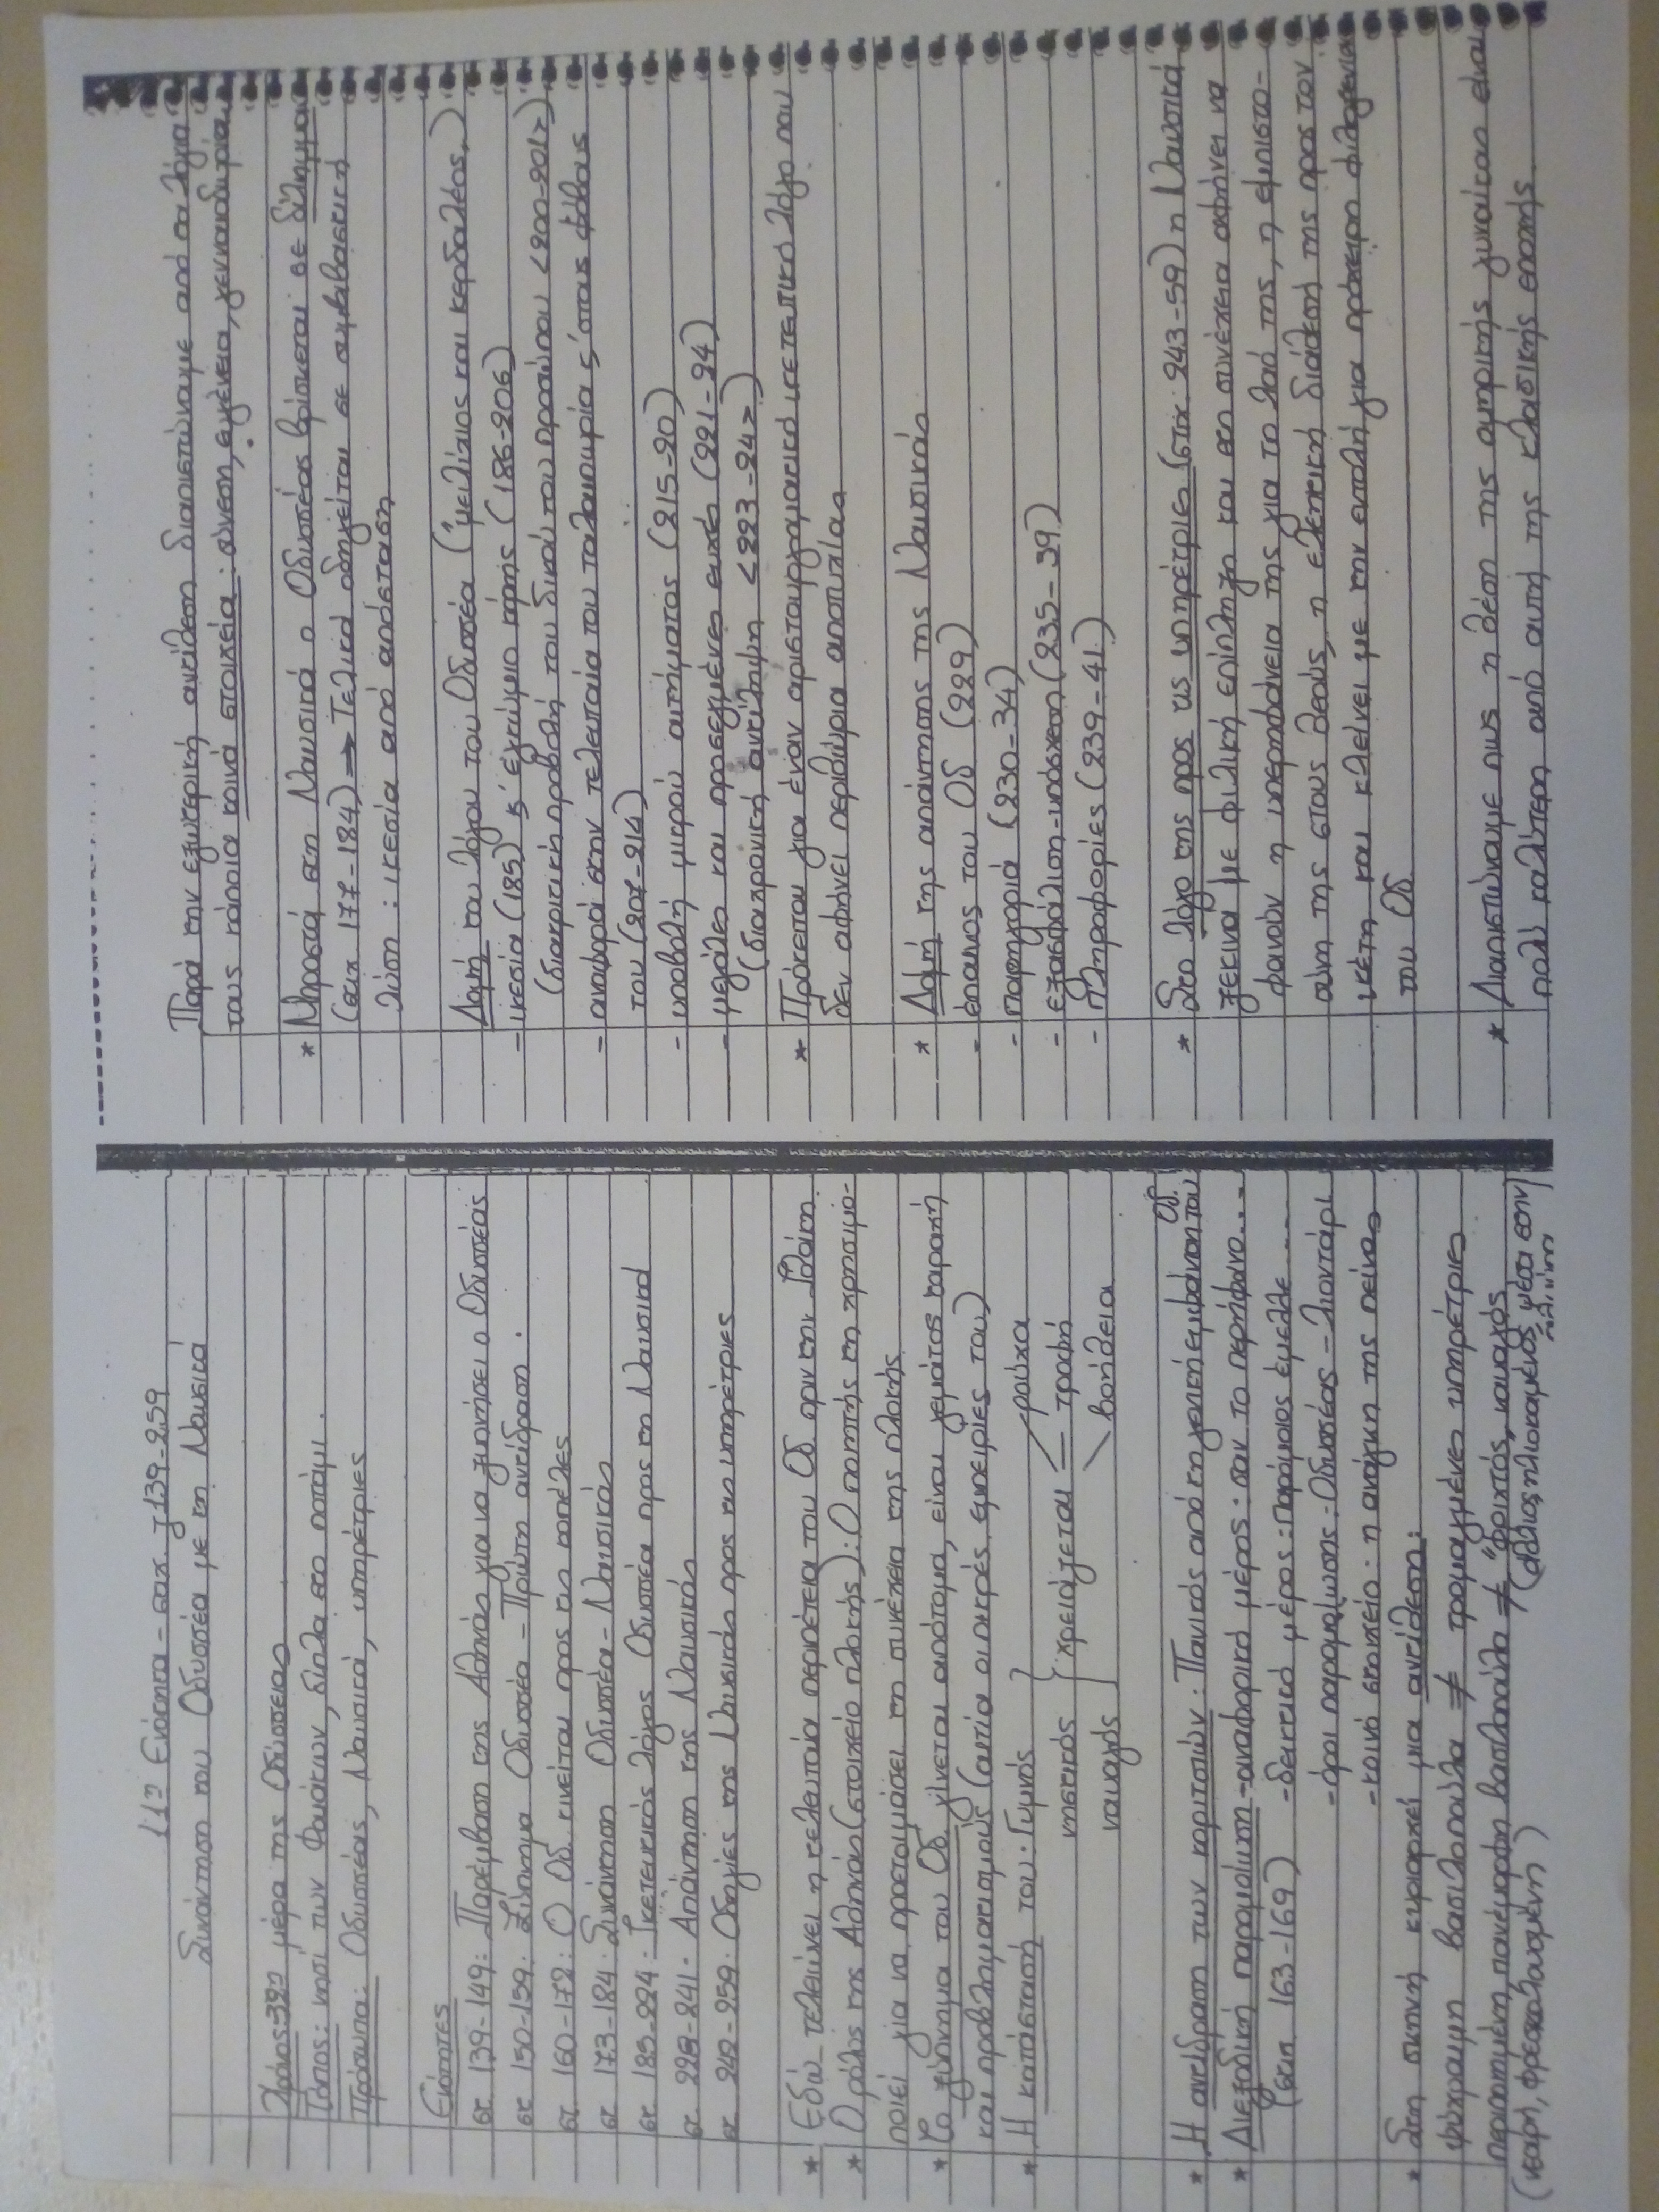 11η Ενότητα - στχ. ζ 139-259
Συνάντηση του Οδυσσέα με τη Ναυσικά
Χρόνος: 32η μέρα της Οδύσσειας
Τόπος: νησί των Φαιάκων, δίπλα στο ποτάμι.
Πρόσωπα: Οδυσσέας, Ναυσικά, υπηρέτριες
Ενότητες
στ 139-149: Παρέμβαση της Αθηνάς για να ξυπνήσει ο Οδυσσέας
στ 150-159: Ξύπνημα Οδυσσέα - Πρώτη αντίδραση.
στ 160-172: Ο Οδ. κινείται προς τις κοπέλες
στ 173-184: Συνάντηση Οδυσσέα - Ναυσικάς
στ 185-224: Ικετευτικός λόγος Οδυσσέα προς τη Ναυσικά
στ 228-241: Απάντηση της Ναυσικάς
στ 242-259: Οδηγίες της Ναυσικάς προς τις υπηρέτριες
* Εδώ τελειώνει η τελευταία περιπέτεια του Οδ πριν την Ιθάκη.
* Ο ρόλος της Αθηνάς (στοιχείο πλοκής): Ο ποιητής τη χρησιμο-
ποιεί για να προετοιμάσει τη συνέχεια της πλοκής
* Το ξύπνημα του Οδ. γίνεται απότομα, είναι γεμάτος ταραχή
και προβληματισμούς (αιτία οι πικρές εμπειρίες του)
* Η κατάστασή του: Γυμνός
νηστικός
ναυαγός
χρειάζεται
ρούχα
τροφή
βοήθεια
* Η αντίδραση των κοριτσιών: Πανικός από τη χαλιή εμφάνιση του Οδ.
* Διεξοδική παρομοίωση - αναφορικό μέρος: σαν το περήφανο...
(στιχ 163-169) - δεικτικό μέρος: παρόμοιος έμελλε....
- όροι παρομοίωσης: Οδυσσέας - λιοντάρι
- κοινό στοιχείο: η ανάγκη της πείνας
* Στη σκηνή κυριαρχεί μια αντίθεση:
ψύχραιμη βασιλοπούλα ≠ τρομαγμένες υπηρέτριες
περιποιημένη, πανέμορφη βασιλοπούλα ≠ "φριχτός" ναυαγός
(νεαρή, φρεσκολουσμένη) (άθλιος, πλισιαμένος μέσα στην
Παρά την εξωτερική αντίθεση διαπιστώναμε από τα λόγια
τους κάποια κοινά στοιχεία: σύνεση, ευγένεια, γενναιοδωρία
* Μπροστά στη Ναυσικά ο Οδυσσέας βρίσκεται σε δίλημμα
(στιχ 177-184) → Τελικά οδηγείται σε συμβιβαστική
λύση: ικεσία από απόσταση
Δομή του λόγου του Οδυσσέα ("μειλίχιος και κερδαλέος")
- ικεσία (185) κ' εγκώμιο κόρης (186-206)
(διακριτική προβολή του δικού του προσώπου <200-201>)
- αναφορά στην τελευταία του ταλαιπωρία κ' στους φόβους
του (207-214)
- υποβολή μικρού αιτήματος (215-20)
- μεγάλες και προσεγμένες ευχές (221-24)
(διαχρονική αντίληψη <223-24>)
* Πρόκειται για έναν αριστουργηματικό ικετευτικό λόγο που
δεν αφήνει περιθώρια αποτυχίας
* Δομή της απάντησης της Ναυσικάς
- έπαινος του Οδ (229)
- παρηγοριά (230-34)
- εξασφάλιση-υπόσχεση (235-39)
- πληροφορίες (239-41)
* Στο λόγο της προς τις υπηρέτριες (στιχ 243-59) η Ναυσικά
ξεκινά με φιλική επίπληξη και στη συνέχεια αφήνει να
φανούν η υπερηφάνεια της για το λαό της, η εμπιστο-
σύνη της στους θεούς, η ελεητική διάθεσή της προς τον
ικέτη και κλείνει με την εντολή για πρόχειρη φιλοξενία
του Οδ.
* Διαπιστώναμε πως η θέση της ομηρικής γυναίκας είναι
πολύ καλύτερη από αυτή της κλασικής εποχής.